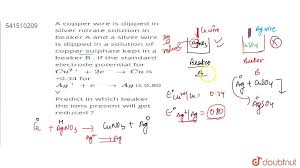 541510209
A copper wire is dipped in
silver nitrate solution in
beaker A and a silver wire
is dipped in a solution of
copper sulphate kept in a
beaker B . If the standard
electrode potential for
Cu²⁺ + 2e⁻ → Cu is
+0.34 for
Ag⁺ + e⁻ → Ag is 0.80
V
Predict in which beaker
the ions present will get
reduced ?
Cu wire
Ag wire
AgNO₃
CuSO₄
Beaker
A
Beaker
B
Ag + CuSO₄
Ag₂SO₄
E°Cu²⁺/Cu = 0.34
E°Ag⁺/Ag = 0.80
Cu + AgNO₃ → CuNO₃ + Ag
Ag⁺ → Ag
doubtnut